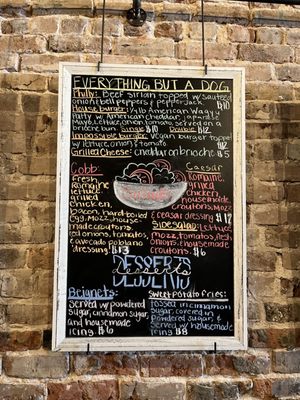 EVERYTHING BUT A DOG
Philly: Beef Sirloin topped w/ sauteed
onion, bell peppers & pepper Jack $10
House burger: 1/4lb American Wagyu
Patty w/ American cheddar, Jalapeño
Mayo, Lettuce, onion, tomato. Served on a
brioche bun. Single $10 Double $12
Impossible burger: vegan burger topped
w/ lettuce, onion & tomato $12
Grilled Cheese: Cheddar on brioche $5
Cobb:
Fresh
Romaine
lettuce,
grilled
chicken,
bacon, hard-boiled
egg, Mozz, house
made croutons,
red onions, tomatoes
& avocado poblano
dressing $13
Caesar
Romaine,
grilled
chicken,
housemade
croutons, Mozz
& Caesar dressing $12
Side Salad: lettuce,
Mozz, tomato, fresh
Onions, & housemade
Croutons $6
DESSERTS
Beignets:
Served w/ powdered
sugar, cinnamon sugar
and housemade
icing $8
Sweet potato fries:
Tossed in cinnamon
sugar, covered in
powdered sugar &
served w/ housemade
icing $8